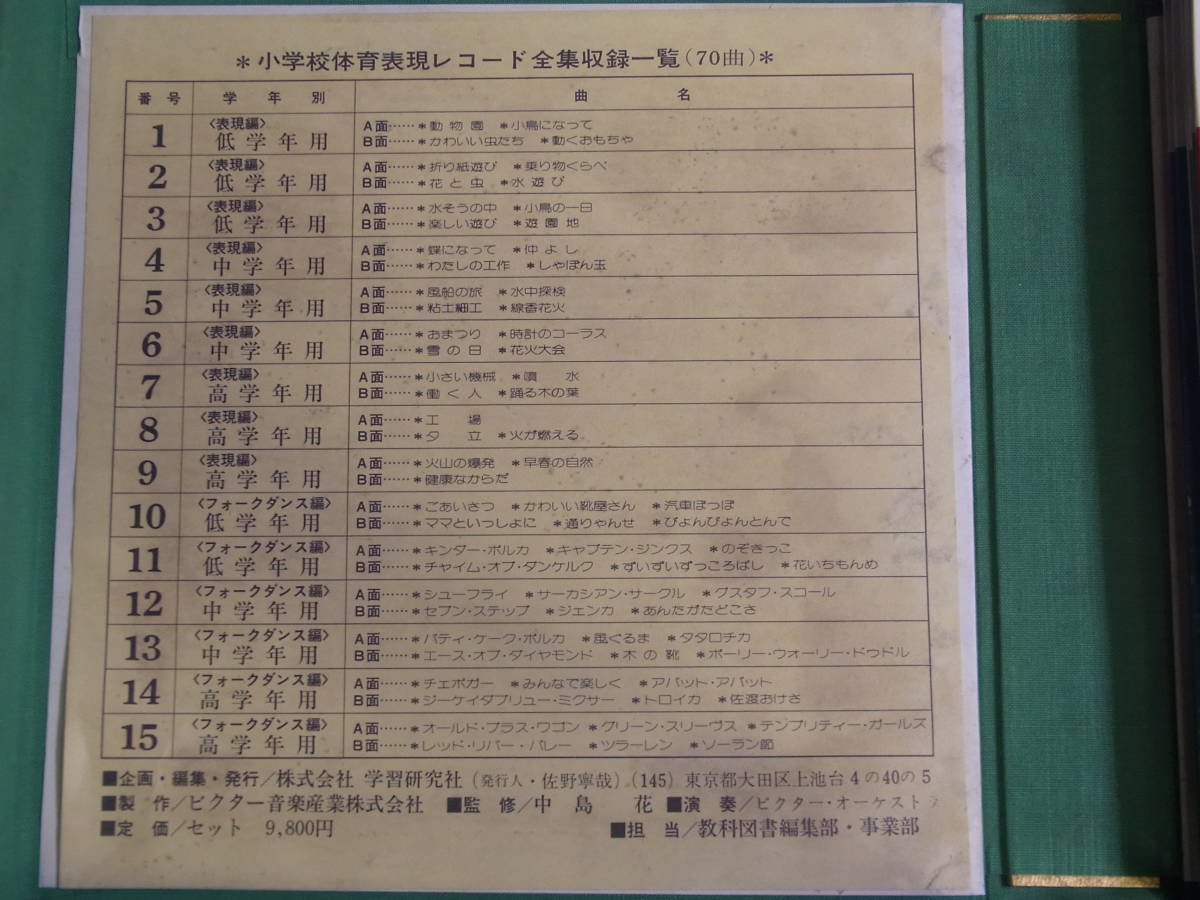 ＊小学校体育表現レコード全集収録一覧(70曲)＊
番号 学年別 曲名
1 〈表現編〉 低学年用 A面……＊動物園 ＊小鳥になって
B面……＊かわいい虫たち ＊動くおもちゃ
2 〈表現編〉 低学年用 A面……＊折り紙遊び ＊乗り物くらべ
B面……＊花と虫 ＊水遊び
3 〈表現編〉 低学年用 A面……＊水そうの中 ＊小鳥の一日
B面……＊楽しい遊び ＊遊園地
4 〈表現編〉 中学年用 A面……＊蝶になって ＊仲よし
B面……＊わたしの工作 ＊しゃぼん玉
5 〈表現編〉 中学年用 A面……＊風船の旅 ＊水中探検
B面……＊粘土細工 ＊線香花火
6 〈表現編〉 中学年用 A面……＊おまつり ＊時計のコーラス
B面……＊雪の日 ＊花火大会
7 〈表現編〉 高学年用 A面……＊小さい機械 ＊噴水
B面……＊働く人 ＊踊る木の葉
8 〈表現編〉 高学年用 A面……＊工場
B面……＊夕立 ＊火が燃える
9 〈表現編〉 高学年用 A面……＊火山の爆発 ＊早春の自然
B面……＊健康なからだ
10 〈フォークダンス編〉 低学年用 A面……＊ごあいさつ ＊かわいい靴屋さん ＊汽車ぽっぽ
B面……＊ママといっしょに ＊通りゃんせ ＊ぴょんぴょんとんで
11 〈フォークダンス編〉 低学年用 A面……＊キンダー・ポルカ ＊キャプテン・ジンクス ＊のぞきっこ
B面……＊チャイム・オブ・ダンケルク ＊ずいずいずっころばし ＊花いちもんめ
12 〈フォークダンス編〉 中学年用 A面……＊シューフライ ＊サーカシアン・サークル ＊グスタフ・スコール
B面……＊セブン・ステップ ＊ジェンカ ＊あんたがたどこさ
13 〈フォークダンス編〉 中学年用 A面……＊パティ・ケーク・ポルカ ＊風ぐるま ＊タタロチカ
B面……＊エース・オブ・ダイヤモンド ＊木の靴 ＊ポーリー・ウォーリー・ドゥドル
14 〈フォークダンス編〉 高学年用 A面……＊チェボガー ＊みんなで楽しく ＊アパット・アパット
B面……＊ジーケイダブリュー・ミクサー ＊トロイカ ＊佐渡おけさ
15 〈フォークダンス編〉 高学年用 A面……＊オールド・ブラス・ワゴン ＊グリーン・スリーヴス ＊テンプリティー・ガールズ
B面……＊レッド・リバー・バレー ＊ツラーレン ＊ソーラン節
■企画・編集・発行/株式会社 学習研究社 (発行人・佐野寧哉) (145) 東京都大田区上池台4の40の5
■製作/ビクター音楽産業株式会社 ■監修/中島 花 ■演奏/ビクター・オーケストラ
■定価/セット 9,800円 ■担当/教科図書編集部・事業部